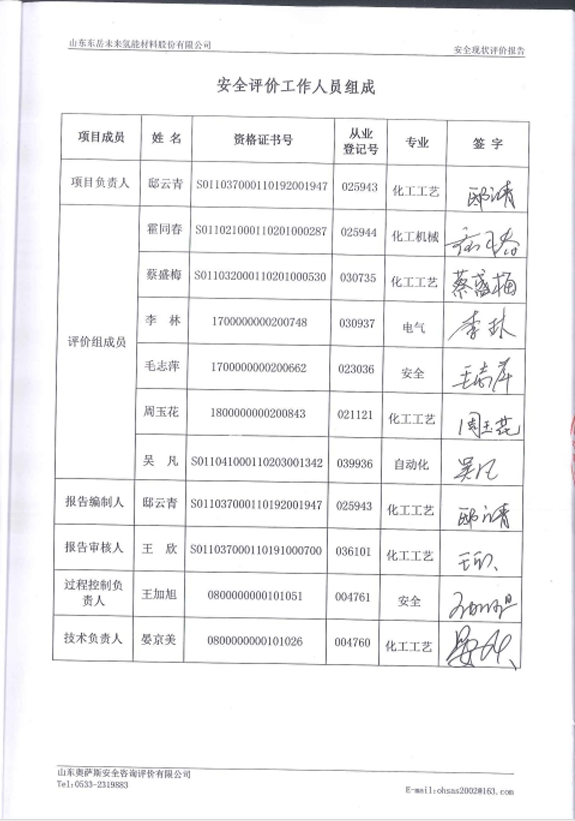 山东东岳未来氢能材料股份有限公司 安全现状评价报告
安全评价工作人员组成
项目成员 姓 名 资格证书号 从业登记号 专业 签 字
项目负责人 邸云青 S011037000110192001947 025943 化工工艺 邸云青
评价组成员
霍同春 S011021000110201000287 025944 化工机械
蔡盛梅 S011032000110201000530 030735 化工工艺 蔡盛梅
李 林 1700000000200748 030937 电气 李林
毛志萍 1700000000200662 023036 安全 毛志萍
周玉花 1800000000200843 021121 化工工艺 周玉花
吴 凡 S011041000110203001342 039936 自动化 吴凡
报告编制人 邸云青 S011037000110192001947 025943 化工工艺 邸云青
报告审核人 王 欣 S011037000110191000700 036101 化工工艺 王欣
过程控制负责人 王加旭 0800000000101051 004761 安全
技术负责人 晏京美 0800000000101026 004760 化工工艺
山东奥萨斯安全咨询评价有限公司
Tel:0533-2319883 E-mail:ohsas2002@163.com